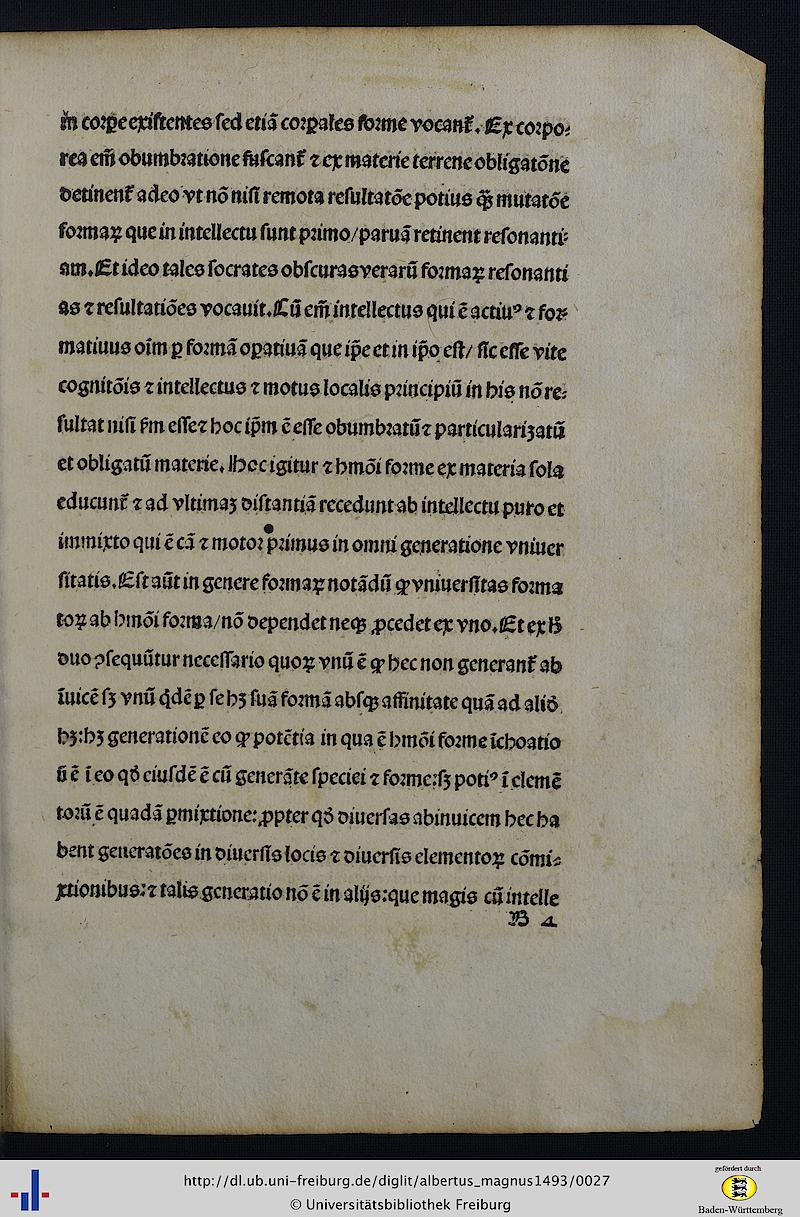 m̄ corꝑe exiſtentes ſed etiã corꝑales forme vocant᷑. Ex corpo⸗
rea em̃ obumbratione fuſcant᷑ ⁊ ex materie terrene obligatõne
detinent᷑ adeo vt nõ niſi remota reſultatõe potius q̃ꝫ mutatõe
formaꝝ que in intellectu ſunt primo/paruã retinent reſonanti⸗
am. Et ideo tales ſocrates obſcuras verarũ formaꝝ reſonanti
as ⁊ reſultatiões vocauit. Cũ em̃ intellectus qui ē actiuꝰ ⁊ for⸗
matiuus oĩm ꝑ formã oꝑatiuã que ip̃e et in ip̃o eſt/ ſic eſſe vite
cognitõis ⁊ intellectus ⁊ motus localis principiũ in his nõ re⸗
ſultat niſi ẜm eſſe ⁊ hoc ip̃m ē eſſe obumbratũ ⁊ particulariʒatũ
et obligatũ materie. Hoc igitur ⁊ hmõi forme ex materia ſola
educunt᷑ ⁊ ad vltimaʒ diſtantiã recedunt ab intellectu puro et
immixto qui ē cã ⁊ motor primus in omni generatione vniuer
ſitatis. Eſt aũt in genere formaꝝ notãdũ ꝙ vniuerſitas forma
toꝝ ab hmõi forma/nõ dependet neqꝫ ꝓcedet ex vno. Et ex h̄
duo ꝯſequũtur neceſſario quoꝝ vnũ ē ꝙ hec non generant᷑ ab
ĩuicē ſꝫ vnũ q̇dē ꝑ ſe hꝫ ſuã formã abſqꝫ affinitate quã ad aliđ
hꝫ: hꝫ generationē eo ꝙ potētia in qua ē hmõi forme ĩchoatio
ñ ē ĩ eo qđ eiuſdē ē cũ generãte ſpeciei ⁊ forme: ſꝫ potiꝰ ĩ elemē
torũ ē quadã ꝑmixtione: ꝓpter qđ diuerſas abinuicem hec ha
bent generatões in diuerſis locis ⁊ diuerſis elementoꝝ cõmi⸗
xtionibus: ⁊ talis generatio nõ ē in alijs: que magis cũ intelle
B 4
http://dl.ub.uni-freiburg.de/diglit/albertus_magnus1493/0027
© Universitätsbibliothek Freiburg
gefördert durch
Baden-Württemberg